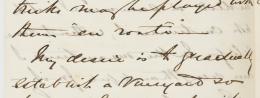 tricks may be played with
them en route —
My desire is to gradually
establish a Vineyard so